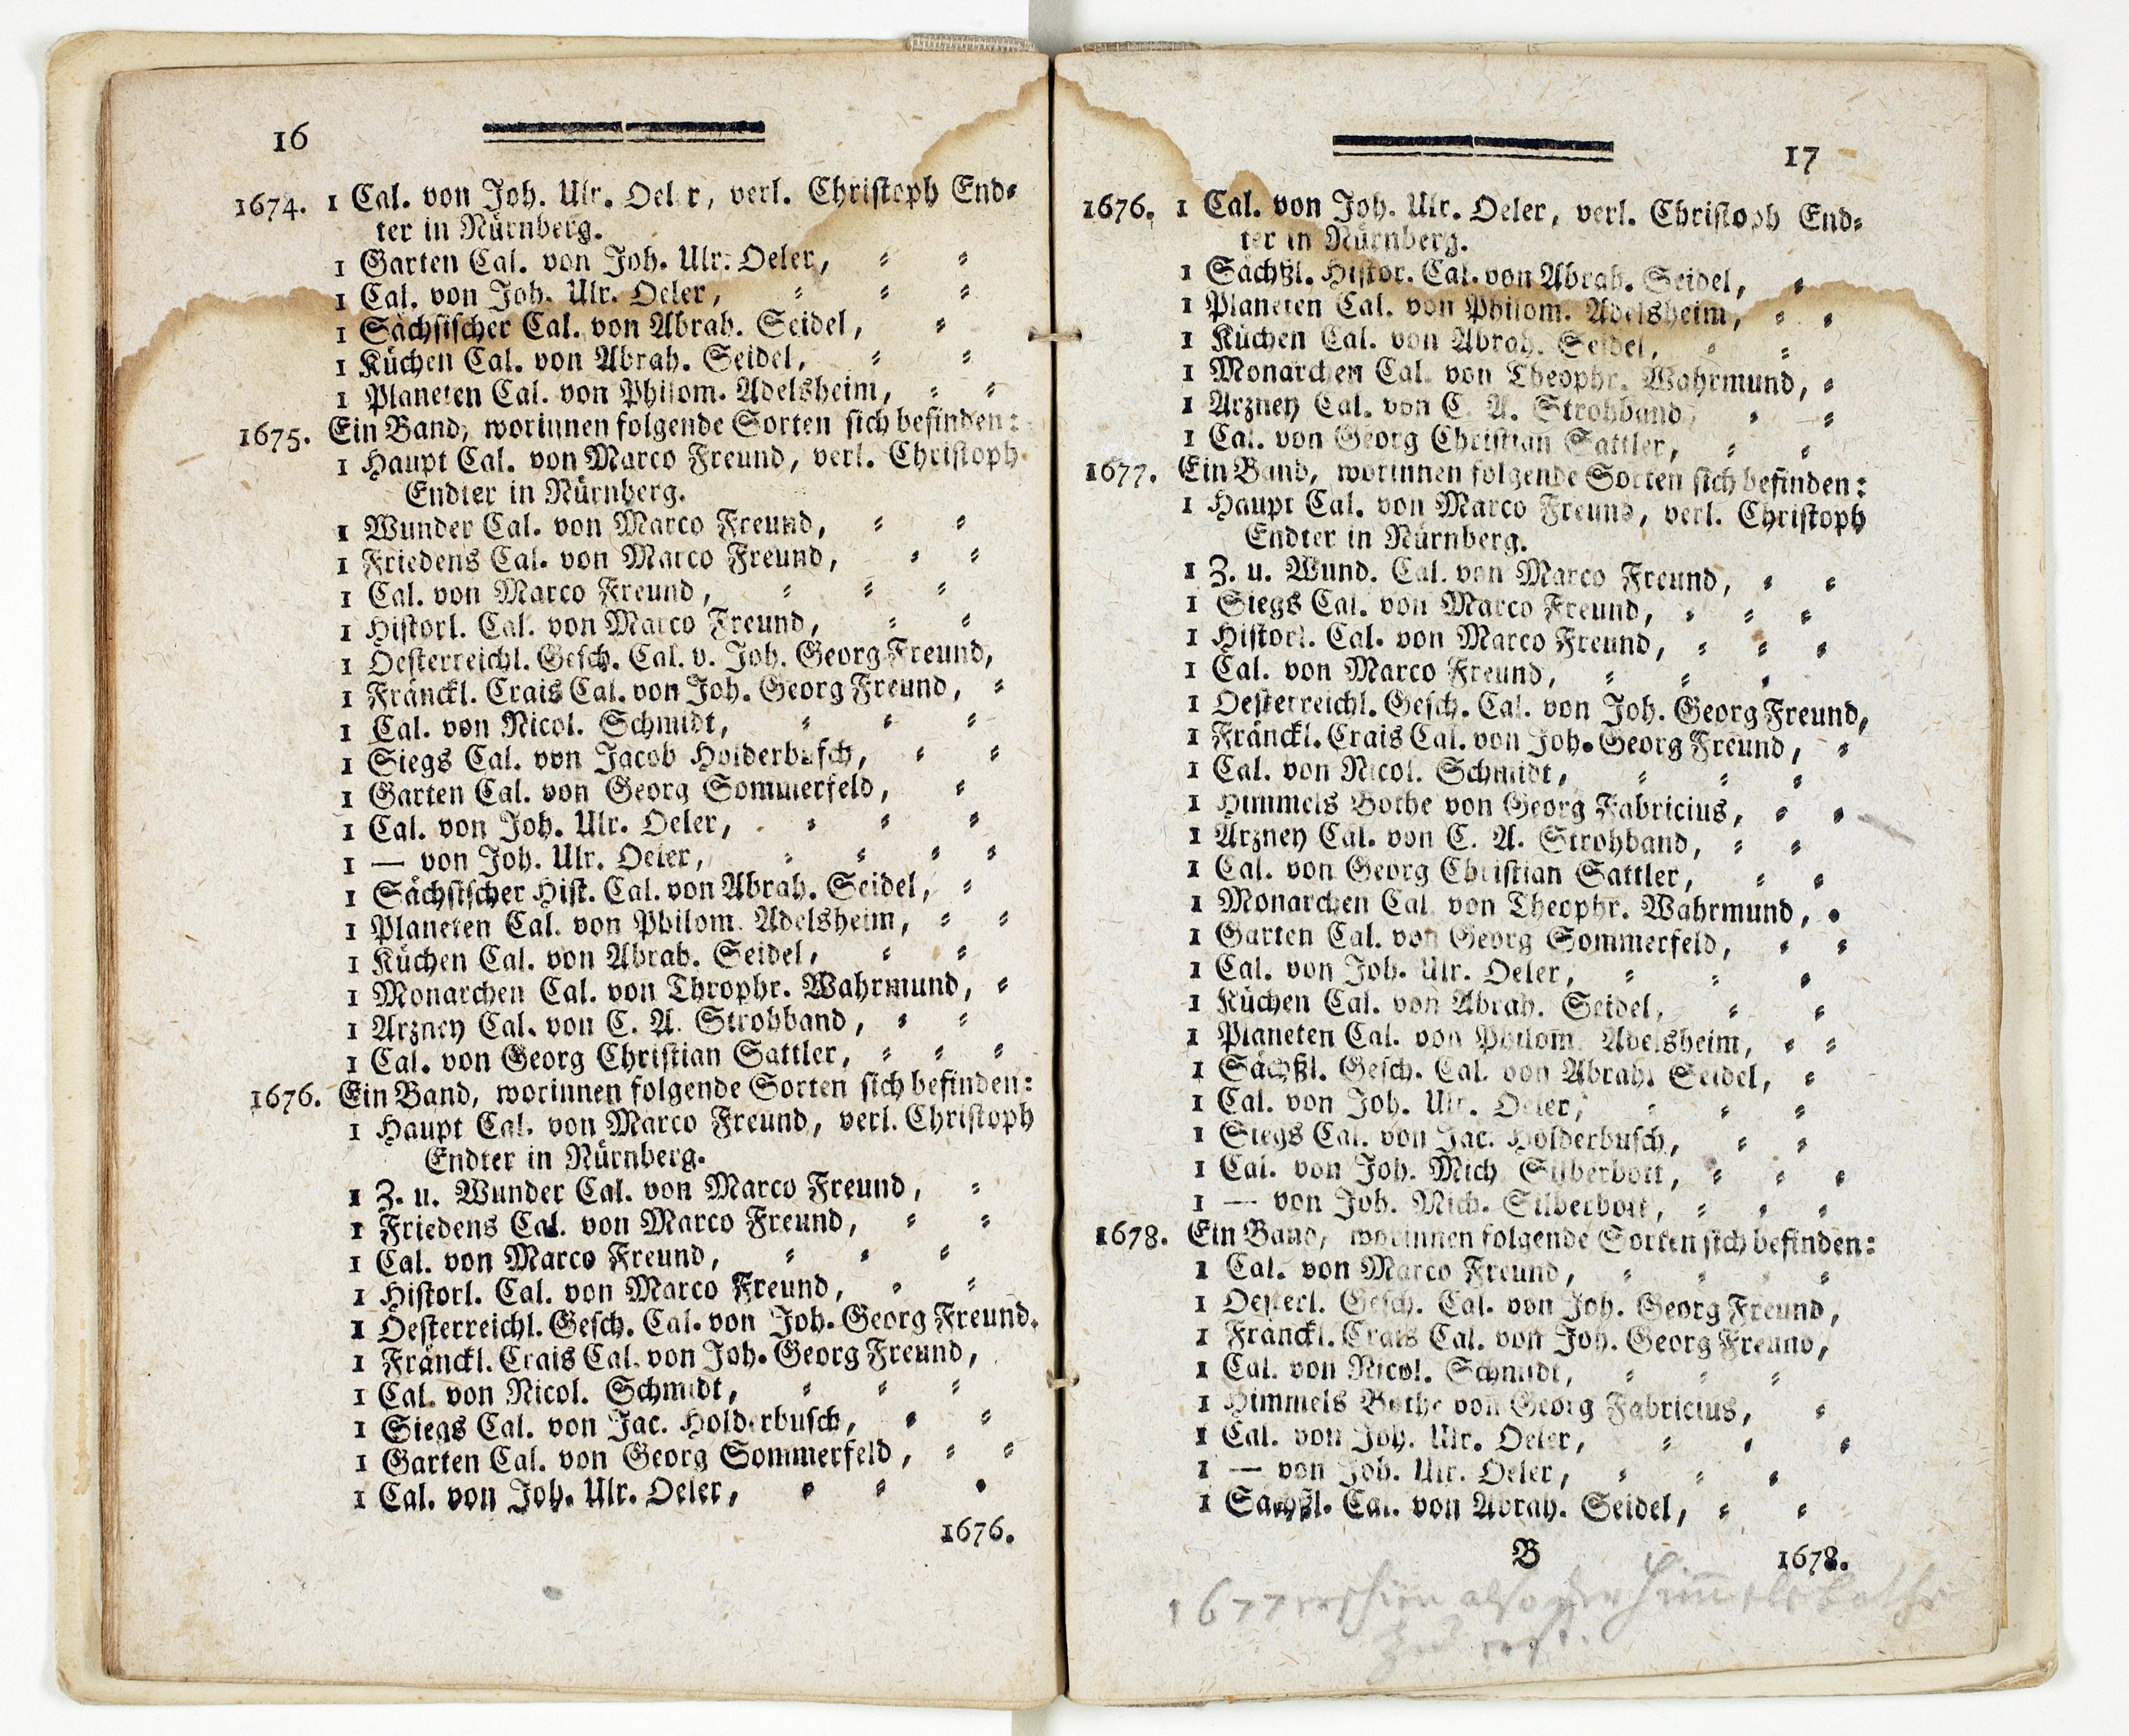 16
1674. 1 Cal. von Joh. Ulr. Oeler, verl. Christoph End⸗
ter in Nürnberg.
1 Garten Cal. von Joh. Ulr. Oeler, ⸗ ⸗
1 Cal. von Joh. Ulr. Oeler, ⸗ ⸗ ⸗
1 Sächsischer Cal. von Abrah. Seidel, ⸗
1 Küchen Cal. von Abrah. Seidel, ⸗ ⸗
1 Planeten Cal. von Philom. Adelsheim, ⸗ ⸗
1675. Ein Band, worinnen folgende Sorten sich befinden:
1 Haupt Cal. von Marco Freund, verl. Christoph
Endter in Nürnberg.
1 Wunder Cal. von Marco Freund, ⸗ ⸗
1 Friedens Cal. von Marco Freund, ⸗ ⸗
1 Cal. von Marco Freund, ⸗ ⸗ ⸗
1 Historl. Cal. von Marco Freund, ⸗ ⸗
1 Oesterreichl. Gesch. Cal. v. Joh. Georg Freund,
1 Fränckl. Crais Cal. von Joh. Georg Freund, ⸗
1 Cal. von Nicol. Schmidt, ⸗ ⸗ ⸗
1 Siegs Cal. von Jacob Holderbusch, ⸗ ⸗
1 Garten Cal. von Georg Sommerfeld, ⸗
1 Cal. von Joh. Ulr. Oeler, ⸗ ⸗ ⸗
1 — von Joh. Ulr. Oeler, ⸗ ⸗ ⸗ ⸗
1 Sächsischer Hist. Cal. von Abrah. Seidel, ⸗
1 Planeten Cal. von Philom. Adelsheim, ⸗ ⸗
1 Küchen Cal. von Abrah. Seidel, ⸗ ⸗
1 Monarchen Cal. von Throphr. Wahrmund, ⸗
1 Arzney Cal. von C. A. Strohband, ⸗ ⸗
1 Cal. von Georg Christian Sattler, ⸗ ⸗ ⸗
1676. Ein Band, worinnen folgende Sorten sich befinden:
1 Haupt Cal. von Marco Freund, verl. Christoph
Endter in Nürnberg.
1 Z. u. Wunder Cal. von Marco Freund, ⸗
1 Friedens Cal. von Marco Freund, ⸗ ⸗
1 Cal. von Marco Freund, ⸗ ⸗ ⸗
1 Historl. Cal. von Marco Freund, ⸗ ⸗
1 Oesterreichl. Gesch. Cal. von Joh. Georg Freund.
1 Fränckl. Crais Cal. von Joh. Georg Freund,
1 Cal. von Nicol. Schmidt, ⸗ ⸗ ⸗
1 Siegs Cal. von Jac. Holderbusch, ⸗ ⸗
1 Garten Cal. von Georg Sommerfeld, ⸗ ⸗
1 Cal. von Joh. Ulr. Oeler, ⸗ ⸗ ⸗
1676.
17
1676. 1 Cal. von Joh. Ulr. Oeler, verl. Christoph End⸗
ter in Nürnberg.
1 Sächßl. Histor. Cal. von Abrah. Seidel, ⸗
1 Planeten Cal. von Philom. Adelsheim, ⸗ ⸗
1 Küchen Cal. von Abrah. Seidel, ⸗ ⸗
1 Monarchen Cal. von Theophr. Wahrmund, ⸗
1 Arzney Cal. von C. A. Strohband, ⸗ ⸗
1 Cal. von Georg Christian Sattler, ⸗ ⸗
1677. Ein Band, worinnen folgende Sorten sich befinden:
1 Haupt Cal. von Marco Freund, verl. Christoph
Endter in Nürnberg.
1 Z. u. Wund. Cal. von Marco Freund, ⸗ ⸗
1 Siegs Cal. von Marco Freund, ⸗ ⸗ ⸗
1 Historl. Cal. von Marco Freund, ⸗ ⸗ ⸗
1 Cal. von Marco Freund, ⸗ ⸗ ⸗
1 Oesterreichl. Gesch. Cal. von Joh. Georg Freund,
1 Fränckl. Crais Cal. von Joh. Georg Freund, ⸗
1 Cal. von Nicol. Schmidt, ⸗ ⸗ ⸗
1 Himmels Bothe von Georg Fabricius, ⸗ ⸗
1 Arzney Cal. von C. A. Strohband, ⸗ ⸗
1 Cal. von Georg Christian Sattler, ⸗ ⸗
1 Monarchen Cal. von Theophr. Wahrmund, ⸗
1 Garten Cal. von Georg Sommerfeld, ⸗ ⸗
1 Cal. von Joh. Ulr. Oeler, ⸗ ⸗ ⸗
1 Küchen Cal. von Abrah. Seidel, ⸗ ⸗
1 Planeten Cal. von Philom. Adelsheim, ⸗ ⸗
1 Sächßl. Gesch. Cal. von Abrah. Seidel, ⸗
1 Cal. von Joh. Ulr. Oeler, ⸗ ⸗ ⸗
1 Siegs Cal. von Jac. Holderbusch, ⸗ ⸗
1 Cal. von Joh. Mich. Silberbott, ⸗ ⸗ ⸗
1 — von Joh. Mich. Silberbott, ⸗ ⸗ ⸗
1678. Ein Band, worinnen folgende Sorten sich befinden:
1 Cal. von Marco Freund, ⸗ ⸗ ⸗ ⸗
1 Oesterl. Gesch. Cal. von Joh. Georg Freund,
1 Fränckl. Crais Cal. von Joh. Georg Freund,
1 Cal. von Nicol. Schmidt, ⸗ ⸗ ⸗
1 Himmels Bothe von Georg Fabricius, ⸗
1 Cal. von Joh. Ulr. Oeler, ⸗ ⸗ ⸗
1 — von Joh. Ulr. Oeler, ⸗ ⸗ ⸗
1 Sächßl. Cal. von Abrah. Seidel, ⸗ ⸗
B 1678.
1677 erschien also der Himmelsbothe
zu erst.